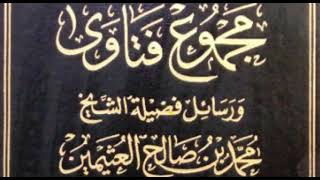 مجموع فتاوى
ورسائل فضيلة الشيخ
محمد بن صالح العثيمين